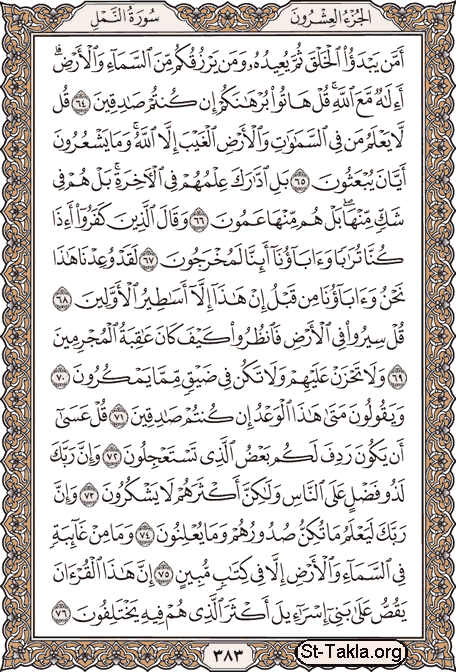 الجزء العشرون سورة النمل
أَمَّن يَبْدَؤُا۟ ٱلْخَلْقَ ثُمَّ يُعِيدُهُۥ وَمَن يَرْزُقُكُم مِّنَ ٱلسَّمَآءِ وَٱلْأَرْضِ ۗ
أَءِلَٰهٌ مَّعَ ٱللَّهِ ۚ قُلْ هَاتُوا۟ بُرْهَٰنَكُمْ إِن كُنتُمْ صَٰدِقِينَ ٦٤ قُل
لَّا يَعْلَمُ مَن فِى ٱلسَّمَٰوَٰتِ وَٱلْأَرْضِ ٱلْغَيْبَ إِلَّا ٱللَّهُ ۚ وَمَا يَشْعُرُونَ
أَيَّانَ يُبْعَثُونَ ٦٥ بَلِ ٱدَّٰرَكَ عِلْمُهُمْ فِى ٱلْءَاخِرَةِ ۚ بَلْ هُمْ فِى
شَكٍّ مِّنْهَا ۖ بَلْ هُم مِّنْهَا عَمُونَ ٦٦ وَقَالَ ٱلَّذِينَ كَفَرُوٓا۟ أَءِذَا
كُنَّا تُرَٰبًا وَءَابَآؤُنَآ أَئِنَّا لَمُخْرَجُونَ ٦٧ لَقَدْ وُعِدْنَا هَٰذَا
نَحْنُ وَءَابَآؤُنَا مِن قَبْلُ إِنْ هَٰذَآ إِلَّآ أَسَٰطِيرُ ٱلْأَوَّلِينَ ٦٨
قُلْ سِيرُوا۟ فِى ٱلْأَرْضِ فَٱنظُرُوا۟ كَيْفَ كَانَ عَٰقِبَةُ ٱلْمُجْرِمِينَ
٦٩ وَلَا تَحْزَنْ عَلَيْهِمْ وَلَا تَكُن فِى ضَيْقٍ مِّمَّا يَمْكُرُونَ ٧٠
وَيَقُولُونَ مَتَىٰ هَٰذَا ٱلْوَعْدُ إِن كُنتُمْ صَٰدِقِينَ ٧١ قُلْ عَسَىٰٓ
أَن يَكُونَ رَدِفَ لَكُم بَعْضُ ٱلَّذِى تَسْتَعْجِلُونَ ٧٢ وَإِنَّ رَبَّكَ
لَذُو فَضْلٍ عَلَى ٱلنَّاسِ وَلَٰكِنَّ أَكْثَرَهُمْ لَا يَشْكُرُونَ ٧٣ وَإِنَّ
رَبَّكَ لَيَعْلَمُ مَا تُكِنُّ صُدُورُهُمْ وَمَا يُعْلِنُونَ ٧٤ وَمَا مِنْ غَآئِبَةٍ
فِى ٱلسَّمَآءِ وَٱلْأَرْضِ إِلَّا فِى كِتَٰبٍ مُّبِينٍ ٧٥ إِنَّ هَٰذَا ٱلْقُرْءَانَ
يَقُصُّ عَلَىٰ بَنِىٓ إِسْرَٰٓءِيلَ أَكْثَرَ ٱلَّذِى هُمْ فِيهِ يَخْتَلِفُونَ ٧٦
٣٨٣
St-Takla.org